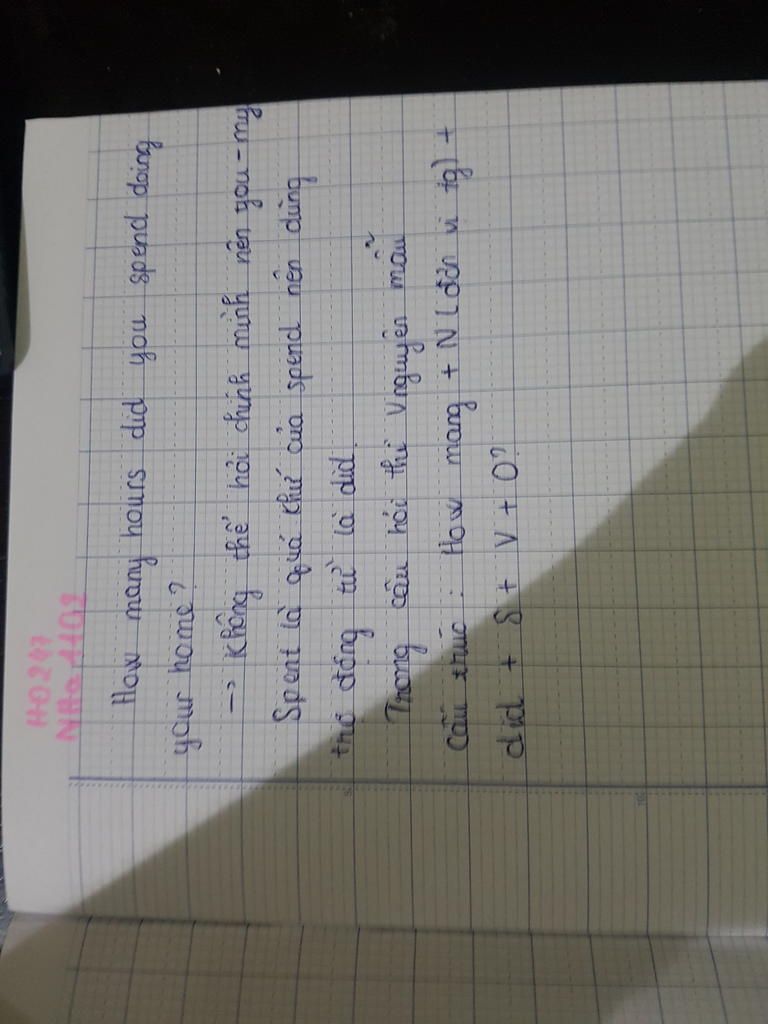 H0247
NHa 1102
How many hours did you spend doing
your home?
→ Không thể hỏi chính mình nên you - my
Spent là quá khứ của spend nên dùng
trợ động từ là did.
Trong câu hỏi thì Vnguyên mẫu
Cấu trúc: How many + N (đơn vị tg) +
did + S + V + O?